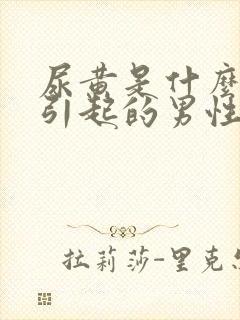 尿黄是什麼
引起的男性
拉莉莎-里克